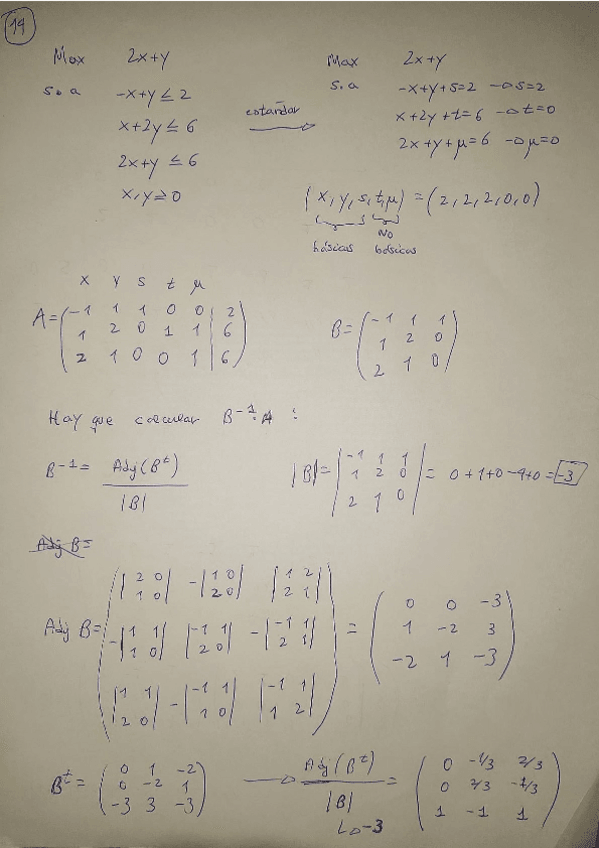 14
Max 2x+y
s. a -x+y ≤ 2
x+2y ≤ 6
2x+y ≤ 6
x,y ≥ 0
estandar
Max 2x+y
s.a -x+y+s=2 → s=2
x+2y+t=6 → t=0
2x+y+μ=6 → μ=0
(x,y,s,t,μ) = (2,2,2,0,0)
básicas No básicas
x y s t μ
A = ( -1 1 1 0 0 | 2
1 2 0 1 1 | 6
2 1 0 0 1 | 6 )
B = ( -1 1 1
1 2 0
2 1 0 )
Hay que calcular B⁻¹·A :
B⁻¹ = Adj(Bᵗ) / |B|
|B| = | -1 1 1
1 2 0
2 1 0 | = 0+1+0-4+0 = -3
Adj B=
Adj B = ( |2 0; 1 0| -|1 0; 2 0| |1 2; 2 1|
-|1 1; 1 0| |-1 1; 2 0| -|-1 1; 2 1|
|1 1; 2 0| -|-1 1; 1 0| |-1 1; 1 2| )
= ( 0 0 -3
1 -2 3
-2 1 -3 )
Bᵗ = ( 0 1 -2
0 -2 1
-3 3 -3 )
→ Adj(Bᵗ) / |B| = ( 0 -1/3 2/3
0 2/3 -1/3
1 -1 1 )
↳ -3